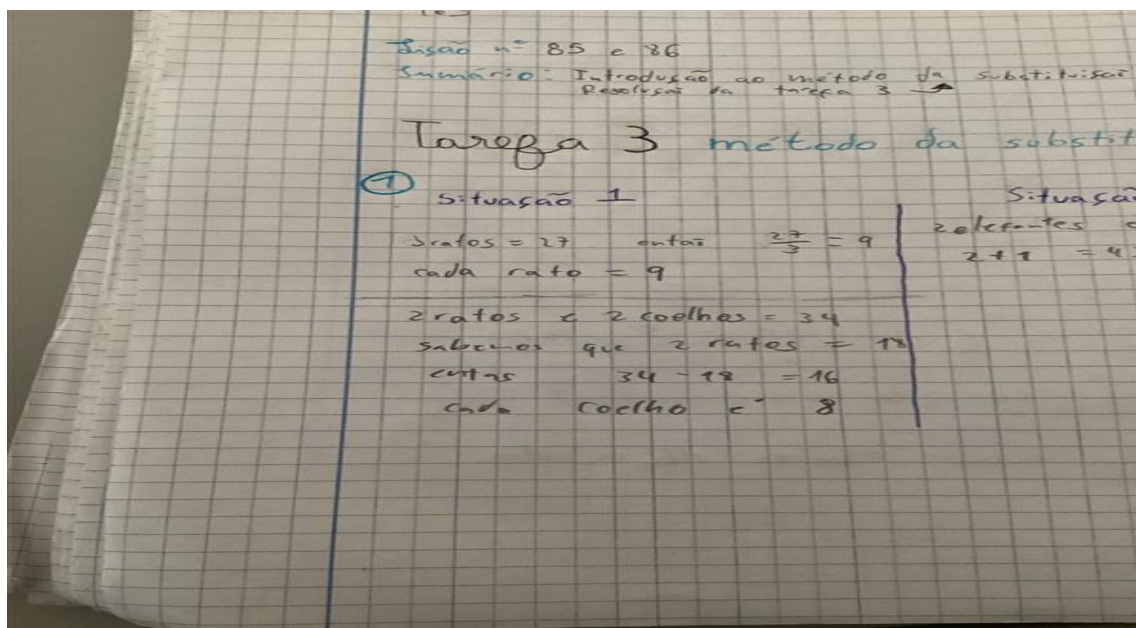 Lisão nº 85 e 86
Sumário: Introdusão ao método da substituisão
Resolusão da tarefa 3
Tarefa 3 método da substit
1
Situasão 1
3ratos = 27 entaõ 27/3 = 9
cada rato = 9
2 ratos e 2 coelhos = 34
sabemos que 2 ratos = 18
entas 34 - 18 = 16
cada coelho é 8
Situasã
2 elefantes
2 + 1 = 4